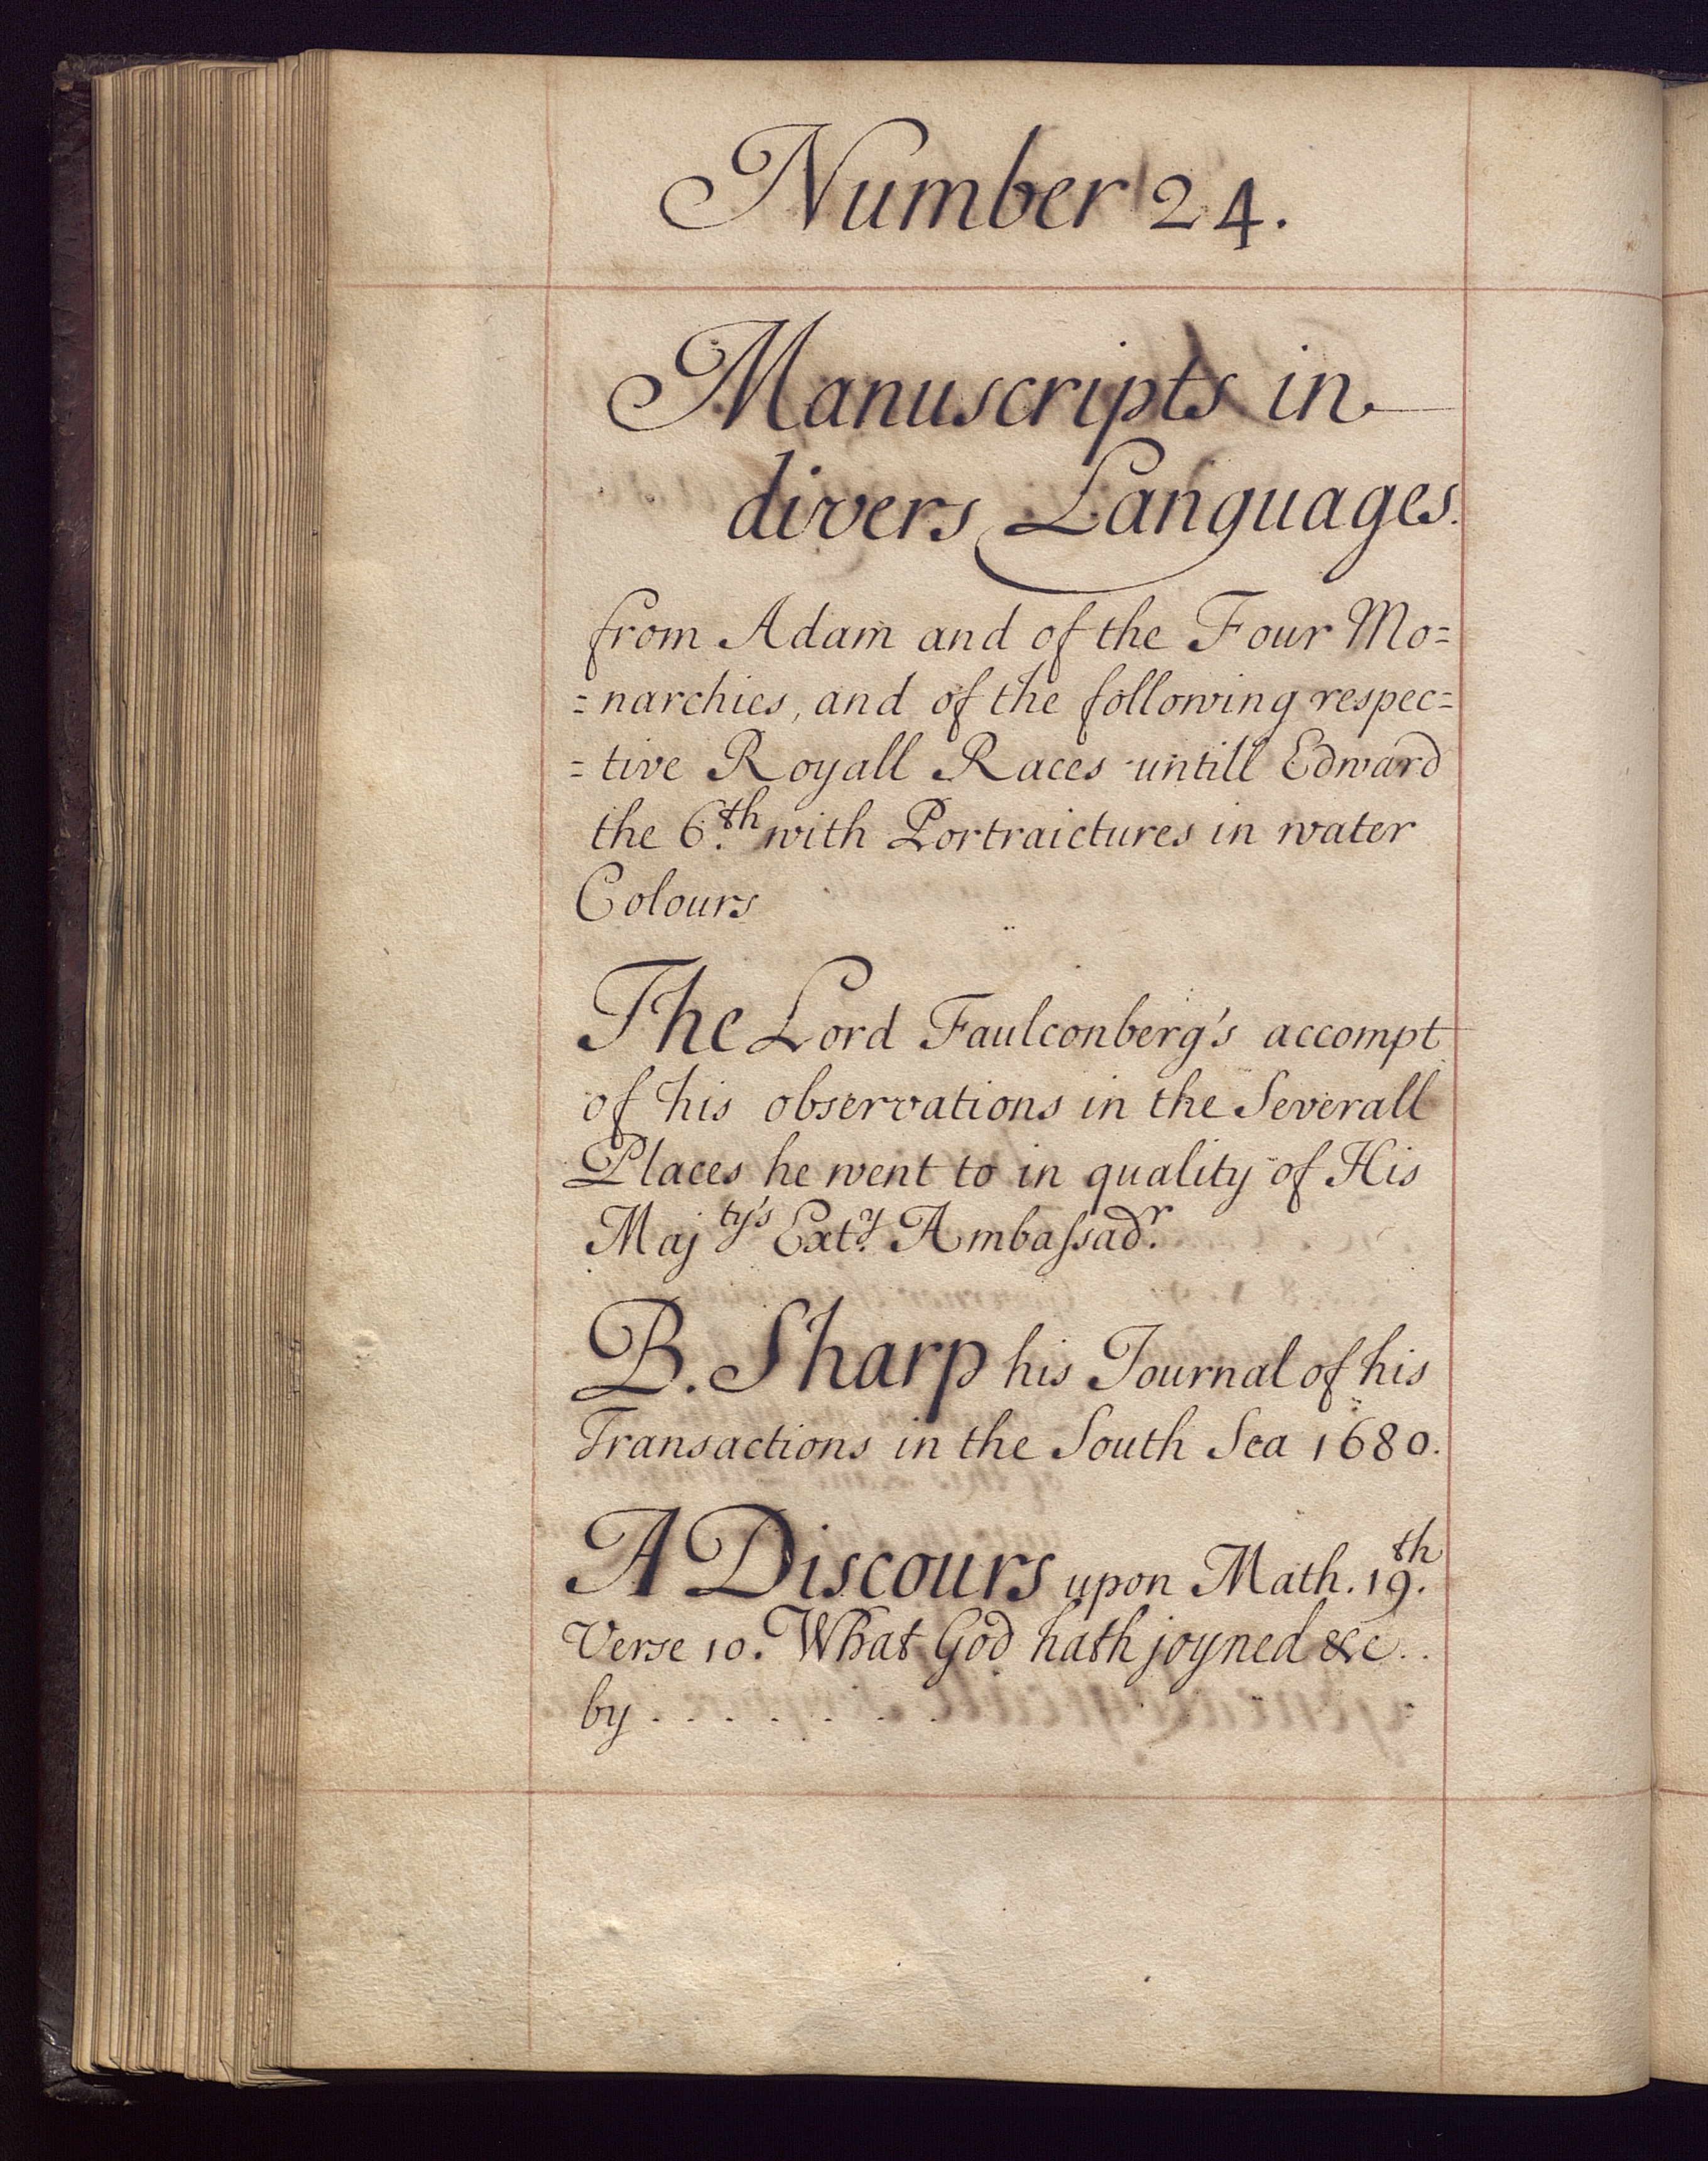 Number 24.
Manuscripts in
divers Languages.
from Adam and of the Four Mo=
=narchies, and of the following respec=
=tive Royall Races untill Edward
the 6.th with Portraictures in water
Colours
The Lord Faulconberg's accompt
of his observations in the Severall
Places he went to in quality of His
Maj ty's Ext.y Ambaſsad.r
B. Sharp his Journal of his
Transactions in the South Sea 1680.
A Discours upon Math. 19.th
Verse 10. What God hath joyned &c..
by . . . . . . . .